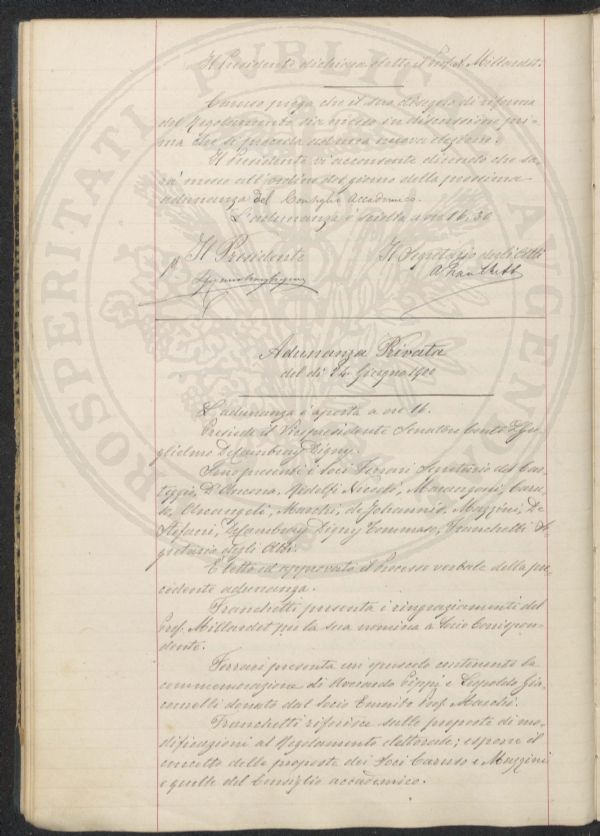 Il Presidente dichiara eletto il Prof. Millardet.
Caruso prega che il suo disegno di riforma
del Regolamento sia messo in discussione pri-
ma che si proceda ad una nuova elezione.
Il Presidente vi acconsente dicendo che sa-
rà messo all'ordine del giorno della prossima
adunanza del Consiglio Accademico.
L'adunanza è sciolta a ore 16.30
Il Presidente Il Segretario degli Atti
A. Franchetti
Adunanza Privata
del dì 24 Giugno 1900
L'adunanza è aperta a ore 16.
Presiede il Vicepresidente Senatore Conte Gu-
glielmo De Cambray Digny.
Sono presenti i soci Ferrari Segretario del Car-
teggio, D'Ancona, Ridolfi Niccolò, Marangoni, Caru-
so, Arcangeli, Marchi, de Johannis, Mazzini, De
Stefani, De Cambray Digny Tommaso, Franchetti Se-
gretario degli Atti.
È letto ed approvato il Processo verbale della pre-
cedente adunanza.
Franchetti presenta i ringraziamenti del
Prof. Millardet per la sua nomina a Socio Corrispon-
dente.
Ferrari presenta un opuscolo contenente la
commemorazione di e Leopoldo Gia-
donato dal Socio Emerito Prof. Marchi.
Franchetti riferisce sulle proposte di mo-
dificazioni al Regolamento elettorale; espone il
concetto delle proposte dei Soci Caruso e Mazzini
e quelle del Consiglio accademico.
PROSPERITATI PUBLICAE AUGENDAE